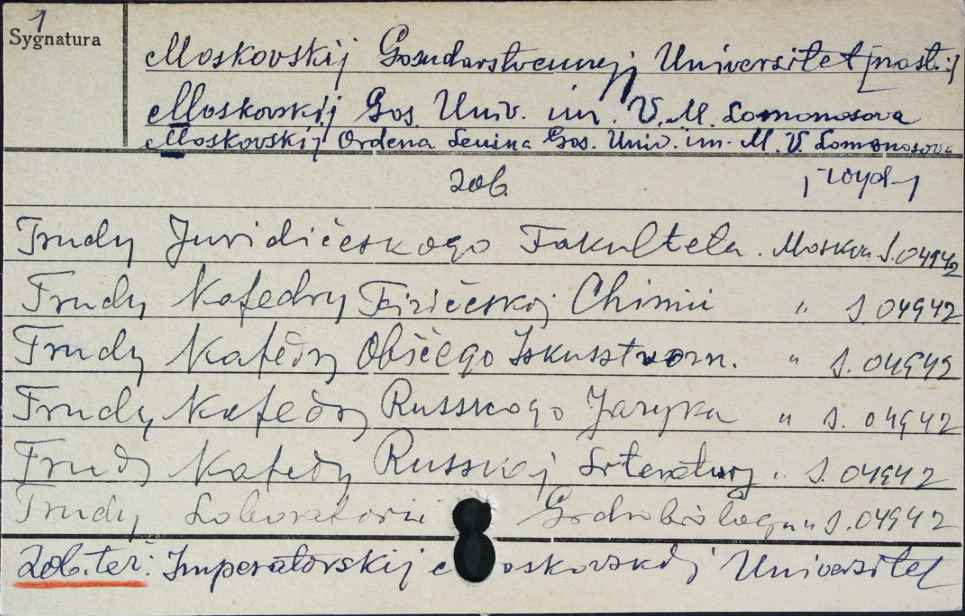 1
Sygnatura
Moskovskij Gosudarstvennyj Universitet [nast.:]
Moskovskij Gos. Univ. im. V. M. Lomonosova
Moskovskij Ordena Lenina Gos. Univ. im. M. V. Lomonosova
zob.
Trudy Juridičeskogo Fakulteta. Moskva S. 04942
Trudy Kafedry Fizičeskoj Chimii " S. 04942
Trudy Kafedry Obščego Iskusstvozn. " S. 04942
Trudy Kafedry Russkogo Jazyka " S. 04942
Trudy Kafedry Russkoj Literatury " S. 04942
Trudy Laboratorii " S. 04942
Zob. też: Imperatorskij Moskovskij Universitet